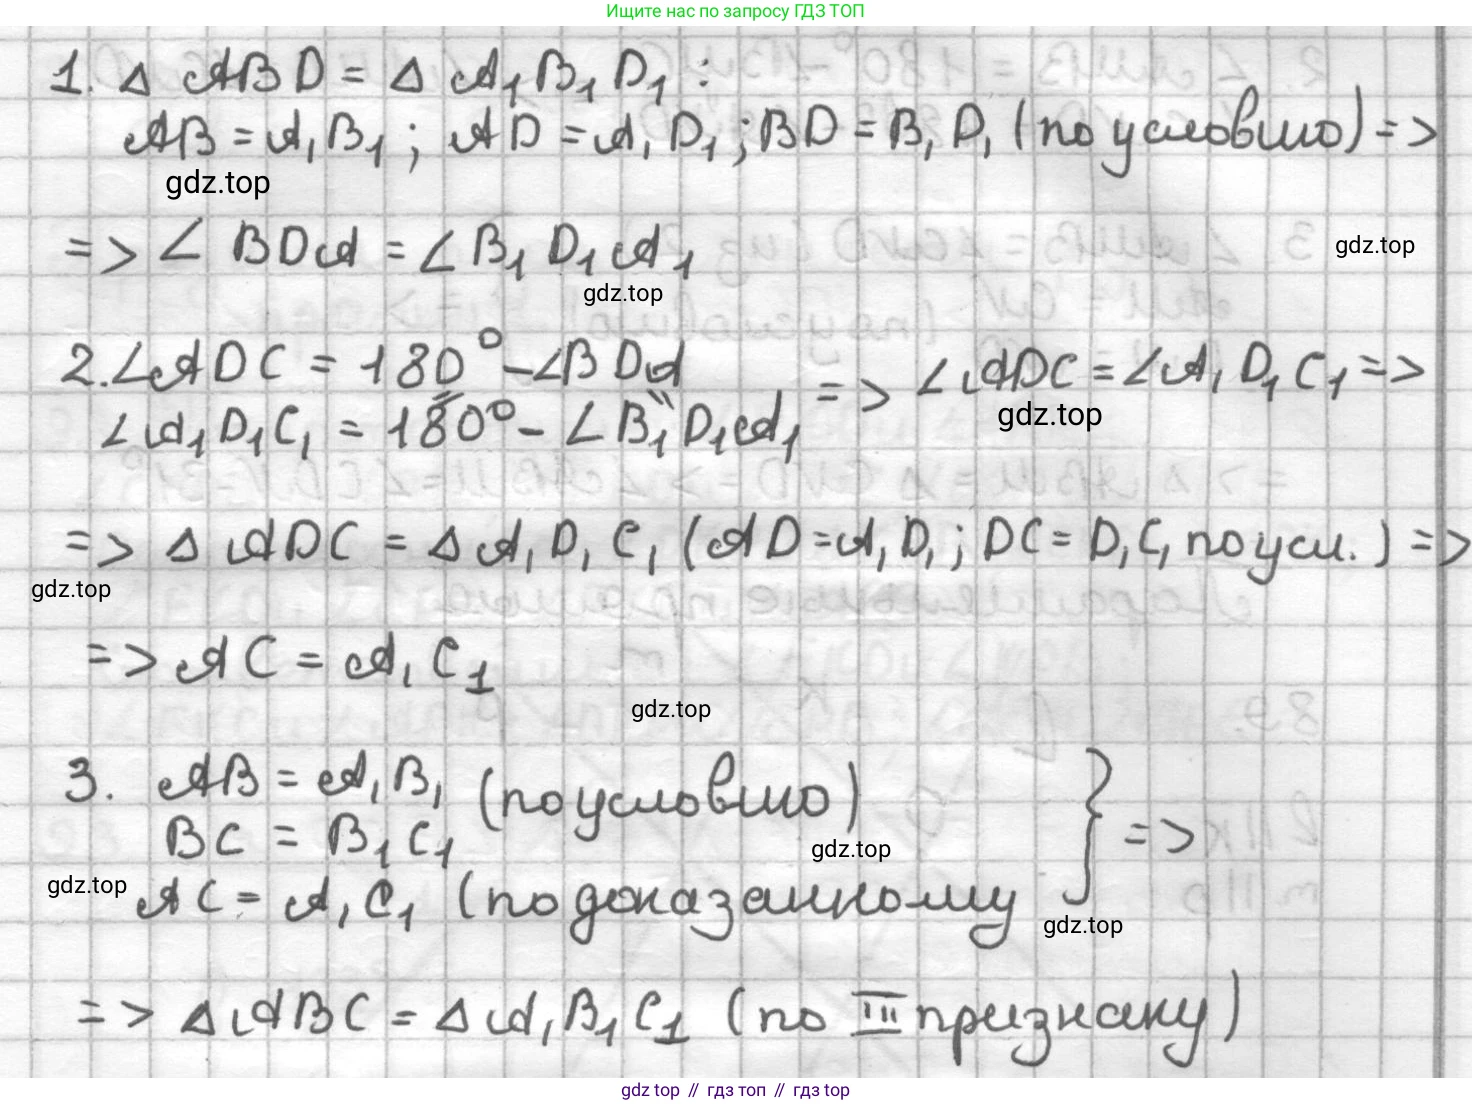 Ищите нас по запросу ГДЗ ТОП
1. Δ ABD = Δ A₁B₁D₁ :
AB = A₁B₁ ; AD = A₁D₁ ; BD = B₁D₁ (по условию) =>
gdz.top
=> ∠ BDA = ∠ B₁D₁A₁
gdz.top
gdz.top
2. ∠ADC = 180° - ∠BDA
∠A₁D₁C₁ = 180° - ∠B₁D₁A₁ => ∠ADC = ∠A₁D₁C₁ =>
gdz.top
=> Δ ADC = Δ A₁D₁C₁ (AD = A₁D₁ ; DC = D₁C₁ по усл.) =>
gdz.top
=> AC = A₁C₁
gdz.top
3. AB = A₁B₁ (по условию)
BC = B₁C₁ } =>
gdz.top
gdz.top
AC = A₁C₁ (по доказанному
gdz.top
=> Δ ABC = Δ A₁B₁C₁ (по III признаку)
gdz.top // гдз топ // гдз top